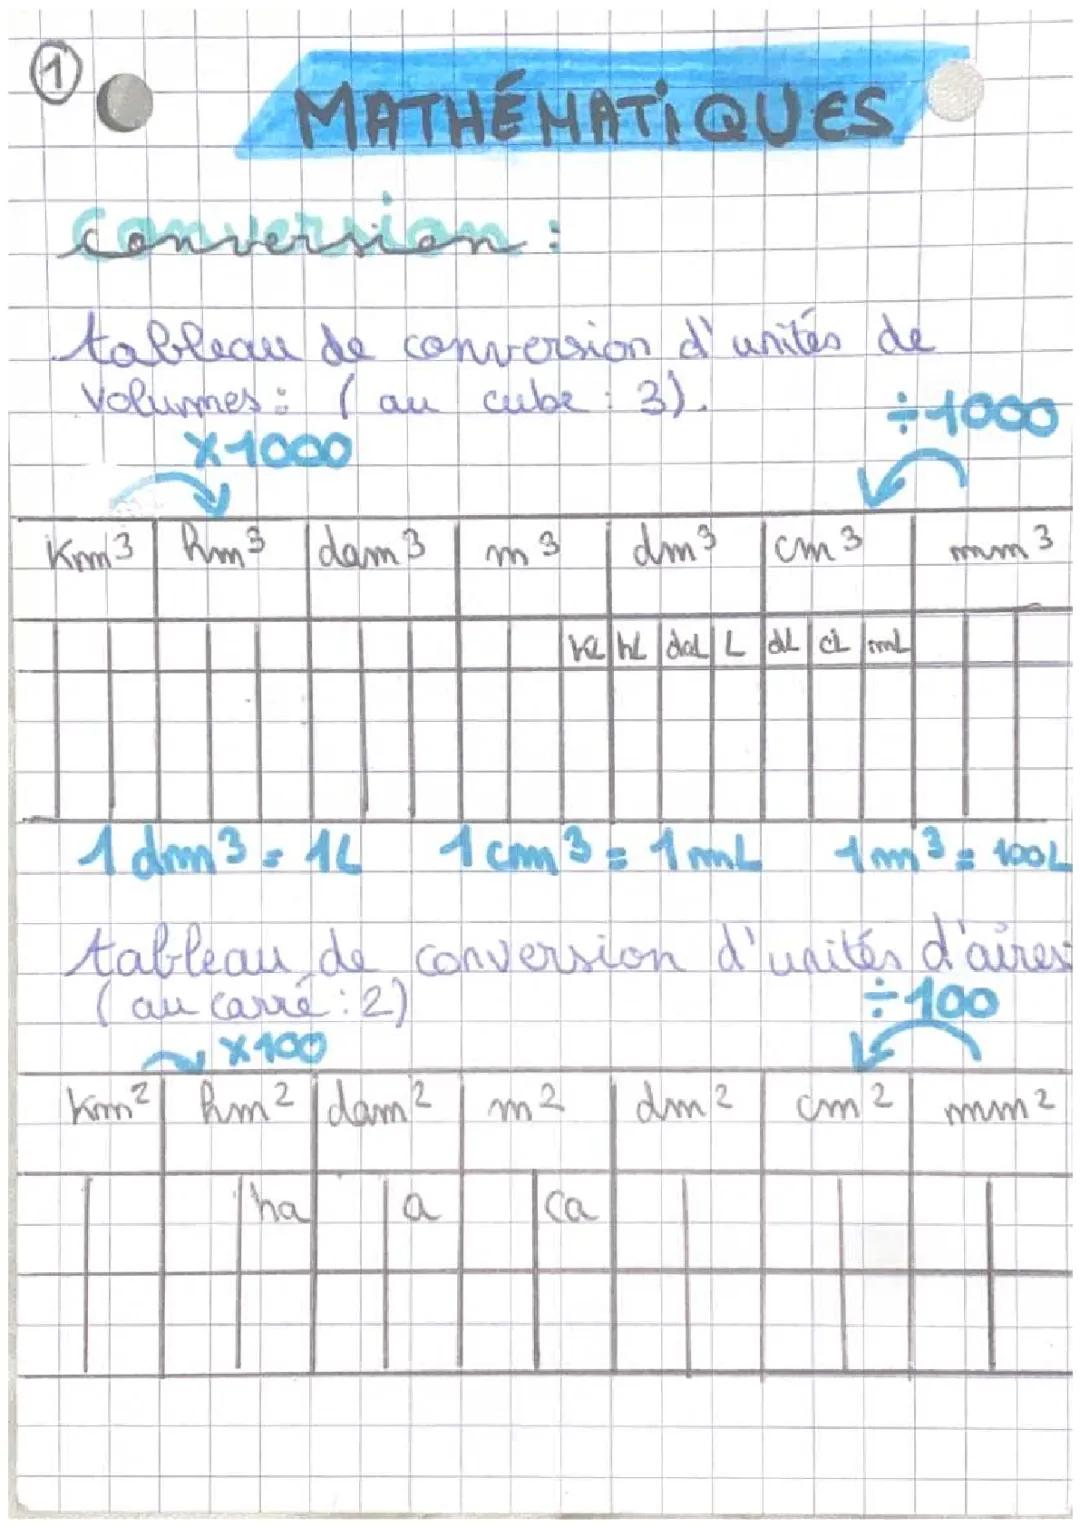 1
MATHÉMATIQUES
conversion :
tableau de conversion d'unités de
volumes : ( au cube : 3).
x1000
÷1000
Km³ hm³ dam³ m³ dm³ cm³ mm³
kL hL daL L dL cL mL
1 dm³ = 1L 1 cm³ = 1 mL 1 m³ = 100L
tableau de conversion d'unités d'aires
( au carré : 2)
÷100
x100
Km² hm² dam² m² dm² cm² mm²
ha a ca